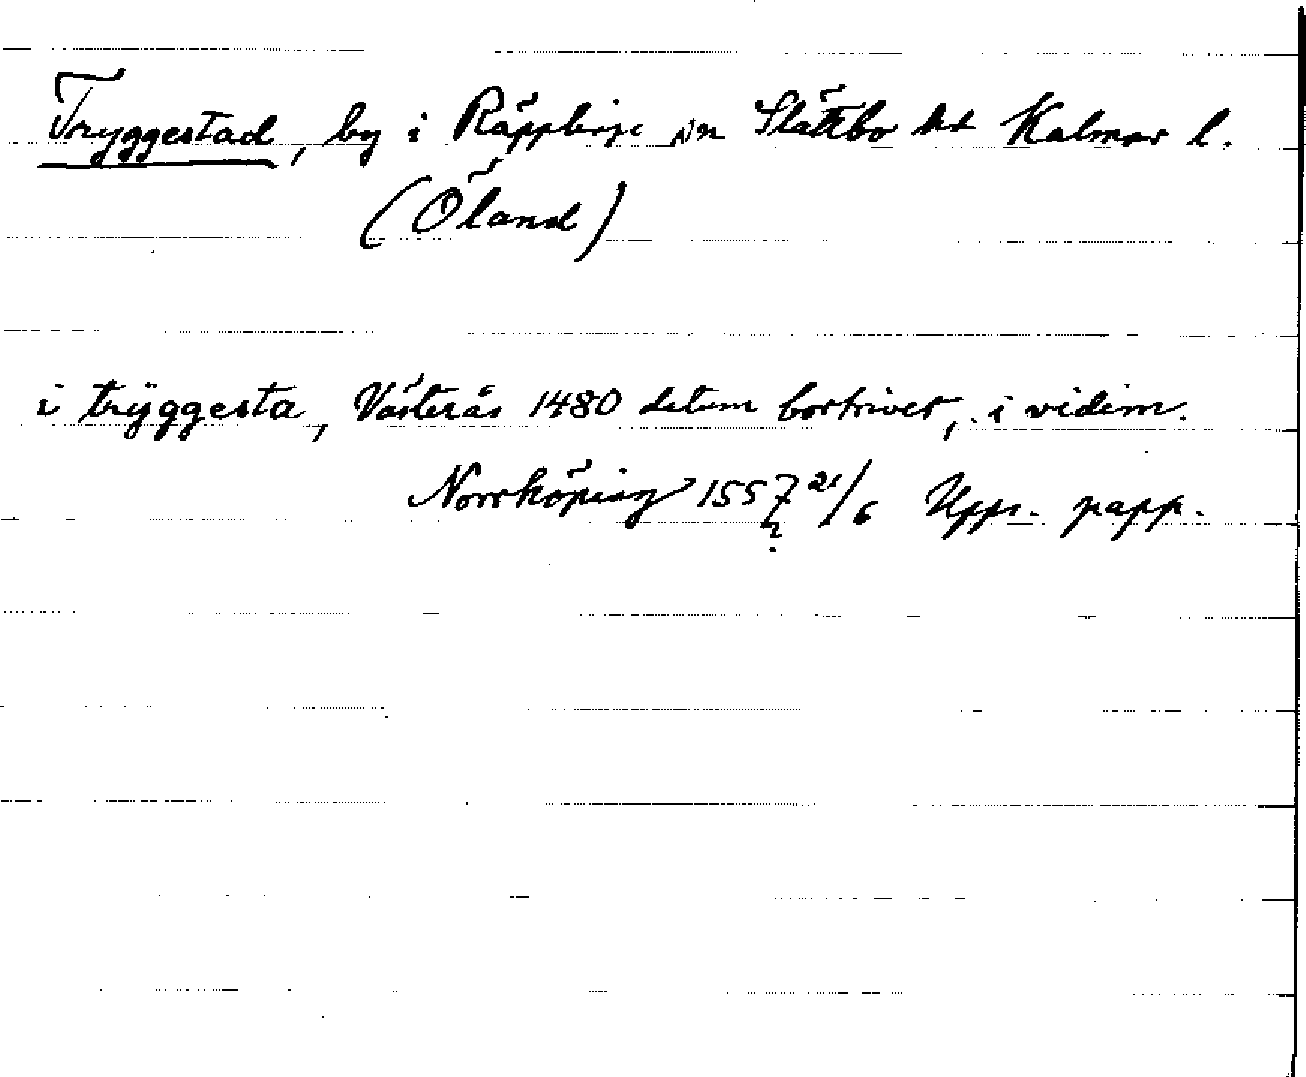 Tryggestad, by i Räpplinge sn Slättbo hd Kalmar l.
(Öland)
i trÿggesta, Västerås 1480 datum bortrivet, i vidim.
Norrköping 1557 21/6 Upps. papp.
?